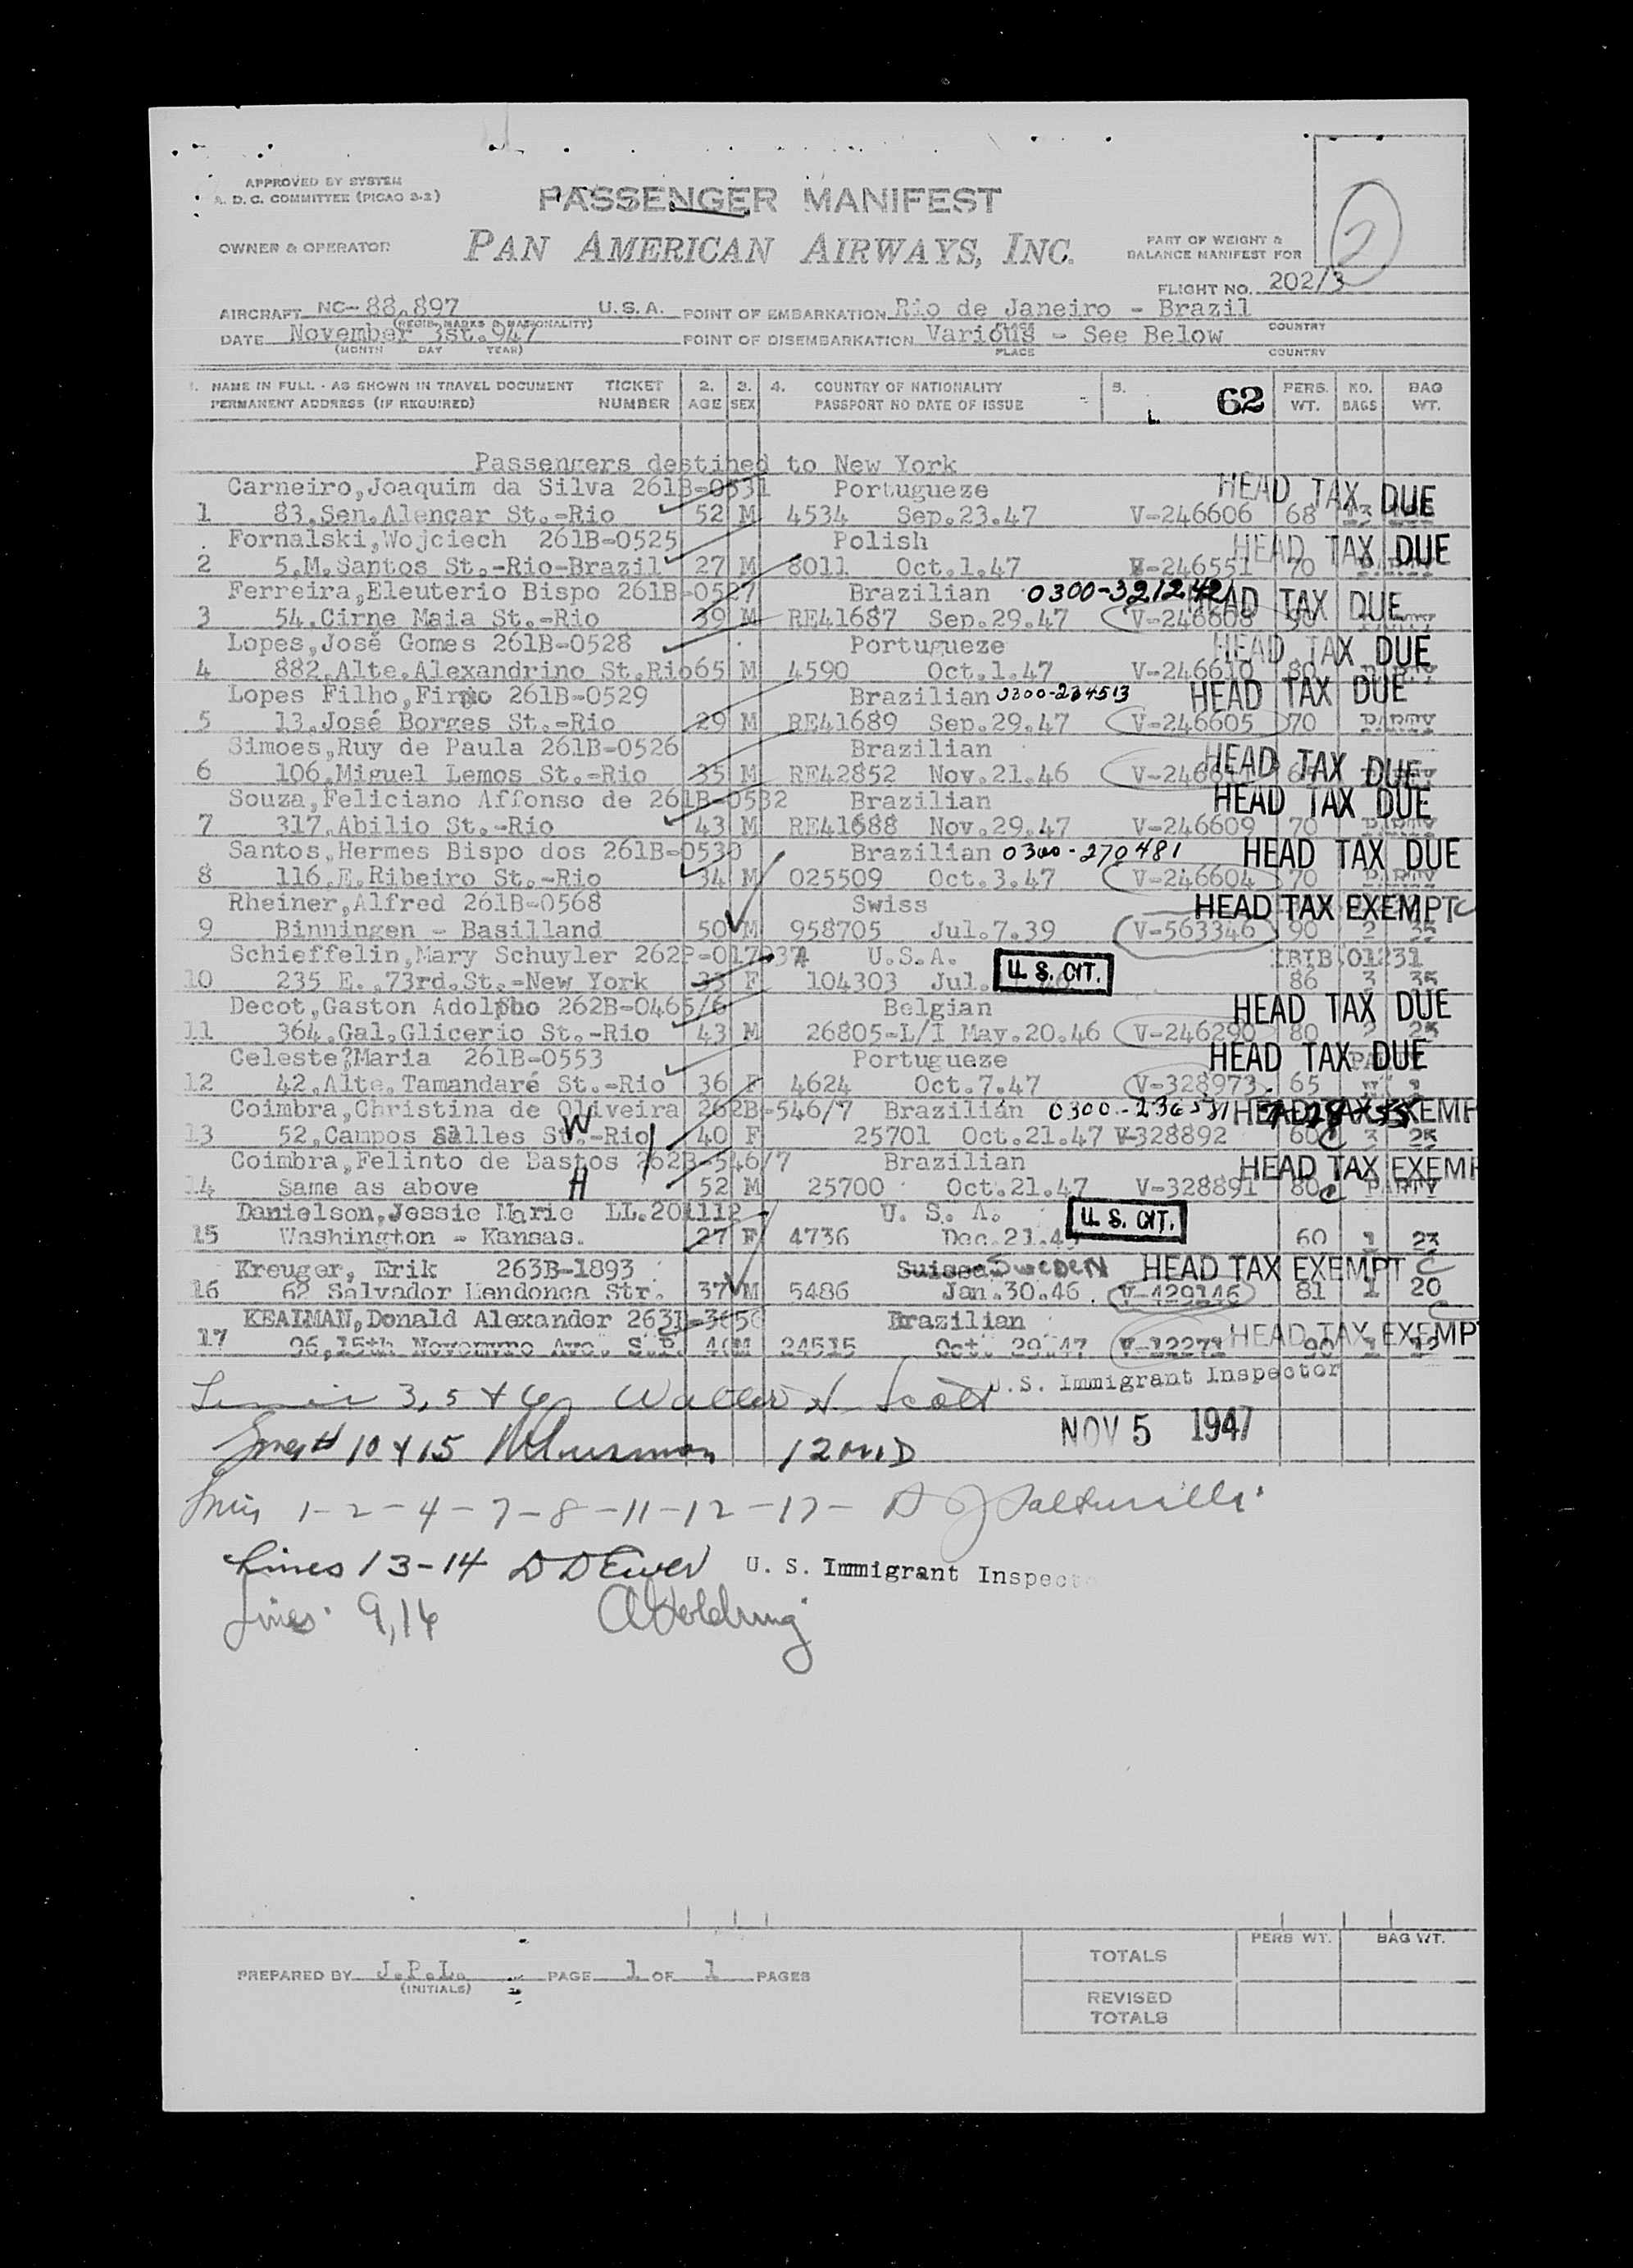 APPROVED BY SYSTEM
A. D. C. COMMITTEE (PICAO 3-2)
PASSENGER MANIFEST
2
OWNER & OPERATOR
PAN AMERICAN AIRWAYS, INC.
PART OF WEIGHT &
BALANCE MANIFEST FOR
FLIGHT NO. 202/3
AIRCRAFT NC-88.897 U.S.A. POINT OF EMBARKATION Rio de Janeiro - Brazil
(REGIS. MARKS & NATIONALITY) PLACE COUNTRY
DATE November 3st.947 POINT OF DISEMBARKATION Various - See Below
(MONTH DAY YEAR) PLACE COUNTRY
1. NAME IN FULL - AS SHOWN IN TRAVEL DOCUMENT TICKET 2. 3. 4. COUNTRY OF NATIONALITY 5. 62 PERS. NO. BAG
PERMANENT ADDRESS (IF REQUIRED) NUMBER AGE SEX PASSPORT NO DATE OF ISSUE WT. BAGS WT.
Passengers destined to New York
Carneiro,Joaquim da Silva 261B-0531 Portugueze HEAD TAX DUE
1 83.Sen.Alencar St.-Rio 52 M 4534 Sep.23.47 V-246606 68
Fornalski,Wojciech 261B-0525 Polish HEAD TAX DUE
2 5.M.Santos St.-Rio-Brazil 27 M 8011 Oct.1.47 V-246551 70
Ferreira,Eleuterio Bispo 261B-0527 Brazilian 0300-321242 HEAD TAX DUE
3 54.Cirne Maia St.-Rio 39 M RE41687 Sep.29.47 V-246608 PARTY
Lopes,José Gomes 261B-0528 Portugueze HEAD TAX DUE
4 882.Alte.Alexandrino St.Rio 65 M 4590 Oct.1.47 V-246610 80 PARTY
Lopes Filho,Firmo 261B-0529 Brazilian 0300-234513 HEAD TAX DUE
5 13.José Borges St.-Rio 29 M RE41689 Sep.29.47 V-246605 70 PARTY
Simoes,Ruy de Paula 261B-0526 Brazilian HEAD TAX DUE
6 106.Miguel Lemos St.-Rio 35 M RE42852 Nov.21.46
Souza,Feliciano Affonso de 261B-0532 Brazilian HEAD TAX DUE
7 317.Abilio St.-Rio 43 M RE41688 Nov.29.47 V-246609 70 PARTY
Santos,Hermes Bispo dos 261B-0530 Brazilian 0300-270481 HEAD TAX DUE
8 116.E.Ribeiro St.-Rio 34 M 025509 Oct.3.47 V-246604 70 PARTY
Rheiner,Alfred 261B-0568 Swiss HEAD TAX EXEMPT C
9 Binningen - Basilland 50 M 958705 Jul.7.39 V-563346 90 2 35
Schieffelin,Mary Schuyler U.S.A. IRIB 01231
10 235 E.,73rd.St.-New York 33 F 104303 Jul. U. S. CIT. 86 3 35
Decot,Gaston Adolpho 262B-0465/6 Belgian HEAD TAX DUE
11 364.Gal.Glicerio St.-Rio 43 M 26805-L/I May.20.46 V-246290 80 2 25
Celeste,Maria 261B-0553 Portugueze HEAD TAX DUE
12 42.Alte.Tamandaré St.-Rio 36 F 4624 Oct.7.47 V-328973 65
Coimbra,Christina de Oliveira 262B-546/7 Brazilian 0300-236581 HEAD TAX EXEMP
13 52,Campos Salles St.-Rio W 40 F 25701 Oct.21.47 V-328892 60 C 3 25
Coimbra,Felinto de Bastos 262B-546/7 Brazilian HEAD TAX EXEMP
14 Same as above H 52 M 25700 Oct.21.47 V-328891 80 C PARTY
Danielson,Jessie Marie LL.201112 U. S. A. U. S. CIT.
15 Washington - Kansas. 27 F 4736 Dec.21.4 60 1 23
Kreuger, Erik 263B-1893 Suisse SWEDEN HEAD TAX EXEMPT C
16 62 Salvador Mendonca Str. 37 M 5486 Jan.30.46 V-429146 81 1 20
KEALMAN,Donald Alexander Brazilian HEAD TAX EXEMPT C
17 96,15th Ave. S.P. M 24515 Oct. 29.47 V-12271 90 1
Lines 3, 5 & 6 Walter N. Scott U.S. Immigrant Inspector
Lines 10 & 15 12 MID NOV 5 1947
Lines 1-2-4-7-8-11-12-17-
Lines 13-14 D D Ewer U. S. Immigrant Inspecto
Lines 9,16
PREPARED BY J.P.L. PAGE 1 OF 1 PAGES
(INITIALS)
TOTALS PERS WT. BAG WT.
REVISED
TOTALS